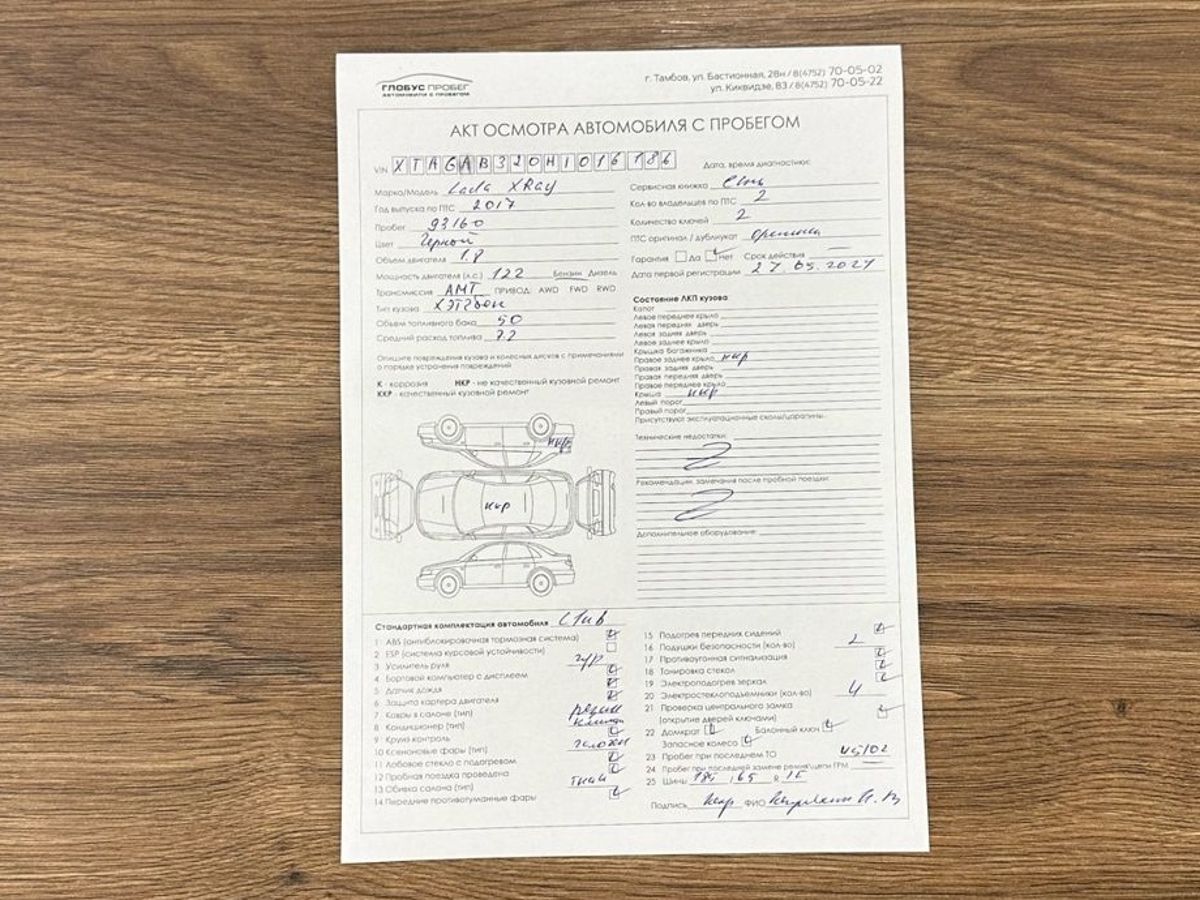 ГЛОБУС ПРОБЕГ
АВТОМОБИЛИ С ПРОБЕГОМ
г. Тамбов, ул. Бастионная, 28н / 8(4752) 70-05-02
ул. Киквидзе, 83 / 8(4752) 70-05-22
АКТ ОСМОТРА АВТОМОБИЛЯ С ПРОБЕГОМ
VIN XTAGAB320H1016786
Дата, время диагностики:
Марка/Модель Lada XRay
Год выпуска по ПТС 2017
Пробег 93160
Цвет Черный
Объем двигателя 1.8
Мощность двигателя (л.с.) 122 Бензин Дизель
Трансмиссия АМТ ПРИВОД: AWD FWD RWD
Тип кузова Хэтчбек
Объем топливного бака 50
Средний расход топлива
Сервисная книжка есть
Кол-во владельцев по ПТС 2
Количество ключей 2
ПТС оригинал / дубликат
Гарантия Да Нет Срок действия —
Дата первой регистрации 27.05.2021
Опишите повреждения кузова и колесных дисков с примечаниями
о порядке устранения повреждений
К - коррозия НКР - не качественный кузовной ремонт
ККР - качественный кузовной ремонт
Состояние ЛКП кузова
Капот
Левое переднее крыло
Левая передняя дверь
Левая задняя дверь
Левое заднее крыло
Крышка багажника
Правое заднее крыло нкр
Правая задняя дверь
Правая передняя дверь
Правое переднее крыло
Крыша нкр
Левый порог
Правый порог
Присутствуют эксплуатационные сколы/царапины.
Технические недостатки:
Рекомендации, замечания после пробной поездки:
Дополнительное оборудование:
нкр
нкр
Стандартная комплектация автомобиля
1 ABS (антиблокировочная тормозная система)
2 ESP (система курсовой устойчивости)
3 Усилитель руля гур
4 Бортовой компьютер с дисплеем
5 Датчик дождя
6 Защита картера двигателя
7 Ковры в салоне (тип) резин
8 Кондиционер (тип)
9 Круиз контроль
10 Ксеноновые фары (тип)
11 Лобовое стекло с подогревом
12 Пробная поездка проведена
13 Обивка салона (тип) ткань
14 Передние противотуманные фары
15 Подогрев передних сидений
16 Подушки безопасности (кол-во) 2
17 Противоугонная сигнализация
18 Тонировка стекол
19 Электроподогрев зеркал
20 Электростеклоподъемники (кол-во) 4
21 Проверка центрального замка
(открытие дверей ключами)
22 Домкрат Балонный ключ
Запасное колесо
23 Пробег при последнем ТО
24 Пробег при последней замене ремня/цепи ГРМ —
25 Шины 185 / 65 R 15
Подпись ФИО